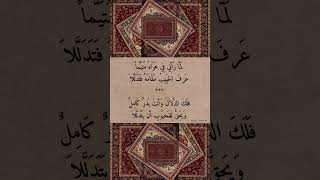 لمّا رآني في هواهُ متيَّماً
عَرفَ الحبيبُ مقامَهُ فتدلَّلا
***
فلكَ الدلالُ وأنتَ بدرٌ كاملٌ
ويحقُّ للمحبوبِ أن يتدلَّلا